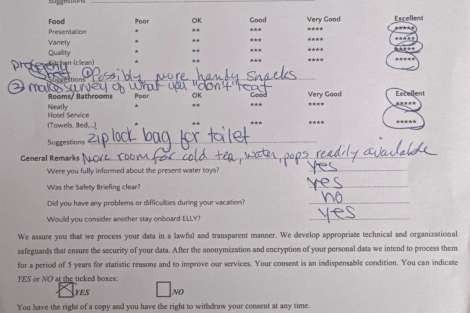 Suggestions
Food Poor OK Good Very Good Excellent
Presentation * ** *** **** *****
Variety * ** *** **** *****
Quality * ** *** **** *****
Kitchen (clean) * ** *** **** *****
Suggestions ① Possibly more handy snacks
② make survey of what you "don't" eat
Rooms/ Bathrooms Poor OK Good Very Good Excellent
Neatly * ** *** **** *****
Hotel Service
(Towels, Bed,..) * ** *** **** *****
Suggestions ziplock bag for toilet
General Remarks More room for cold tea, water, pops readily available
Were you fully informed about the present water toys? yes
Was the Safety Briefing clear? yes
Did you have any problems or difficulties during your vacation? no
Would you consider another stay onboard ELLY? yes
We assure you that we process your data in a lawful and transparent manner. We develop appropriate technical and organizational
safeguards that ensure the security of your data. After the anonymization and encryption of your personal data we intend to process them
for a period of 5 years for statistic reasons and to improve our services. Your consent is an indispensable condition. You can indicate
YES or NO at the ticked boxes:
YES NO
You have the right of a copy and you have the right to withdraw your consent at any time.